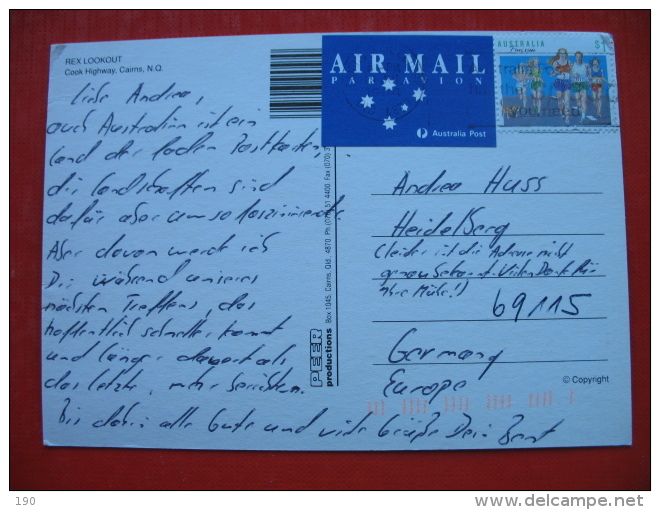 REX LOOKOUT
Cook Highway, Cairns, N.Q.
Liebe Andrea,
auch Australien ist ein
Land der faden Postkarten,
die Landschaften sind
dafür aber umso faszinierender.
Aber davon werde ich
Dir während unseres
nächsten Treffens, das
hoffentlich schneller kommt
und länger dauert als
das letzte, mehr berichten.
Bis dahin alles Gute und viele Grüße Dein Bernt
PEER
productions
Box 1045, Cairns, Qld., 4870. Ph (070) 51 4400. Fax (070)
AIR MAIL
PAR AVION
Australia Post
AUSTRALIA
$1
Fun run
Andrea Huss
Heidelberg
(leider ist die Adresse nicht
genau bekannt. Vielen Dank für
Ihre Mühe!)
69115
Germany
Europe
© Copyright
190
www.delcampe.net